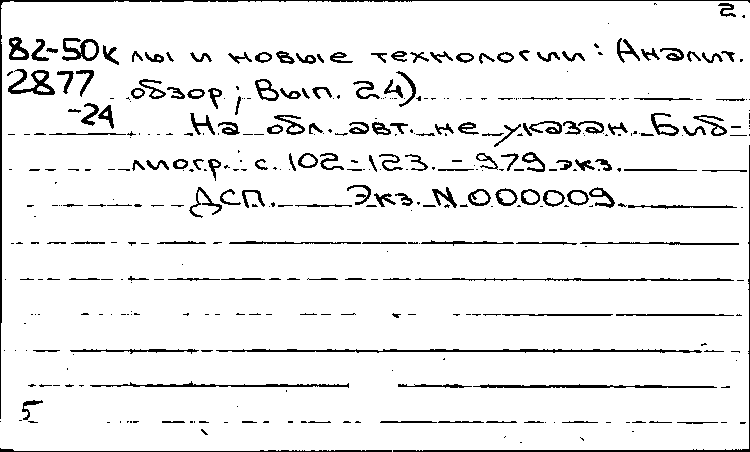 2.
82-50к лы и новые технологии: Аналит.
2877 обзор; Вып. 24).
-24 На обл. авт. не указан. Биб-
лиогр.: с. 102-123. - 979 экз.
ДСП. Экз. N 000009.
5